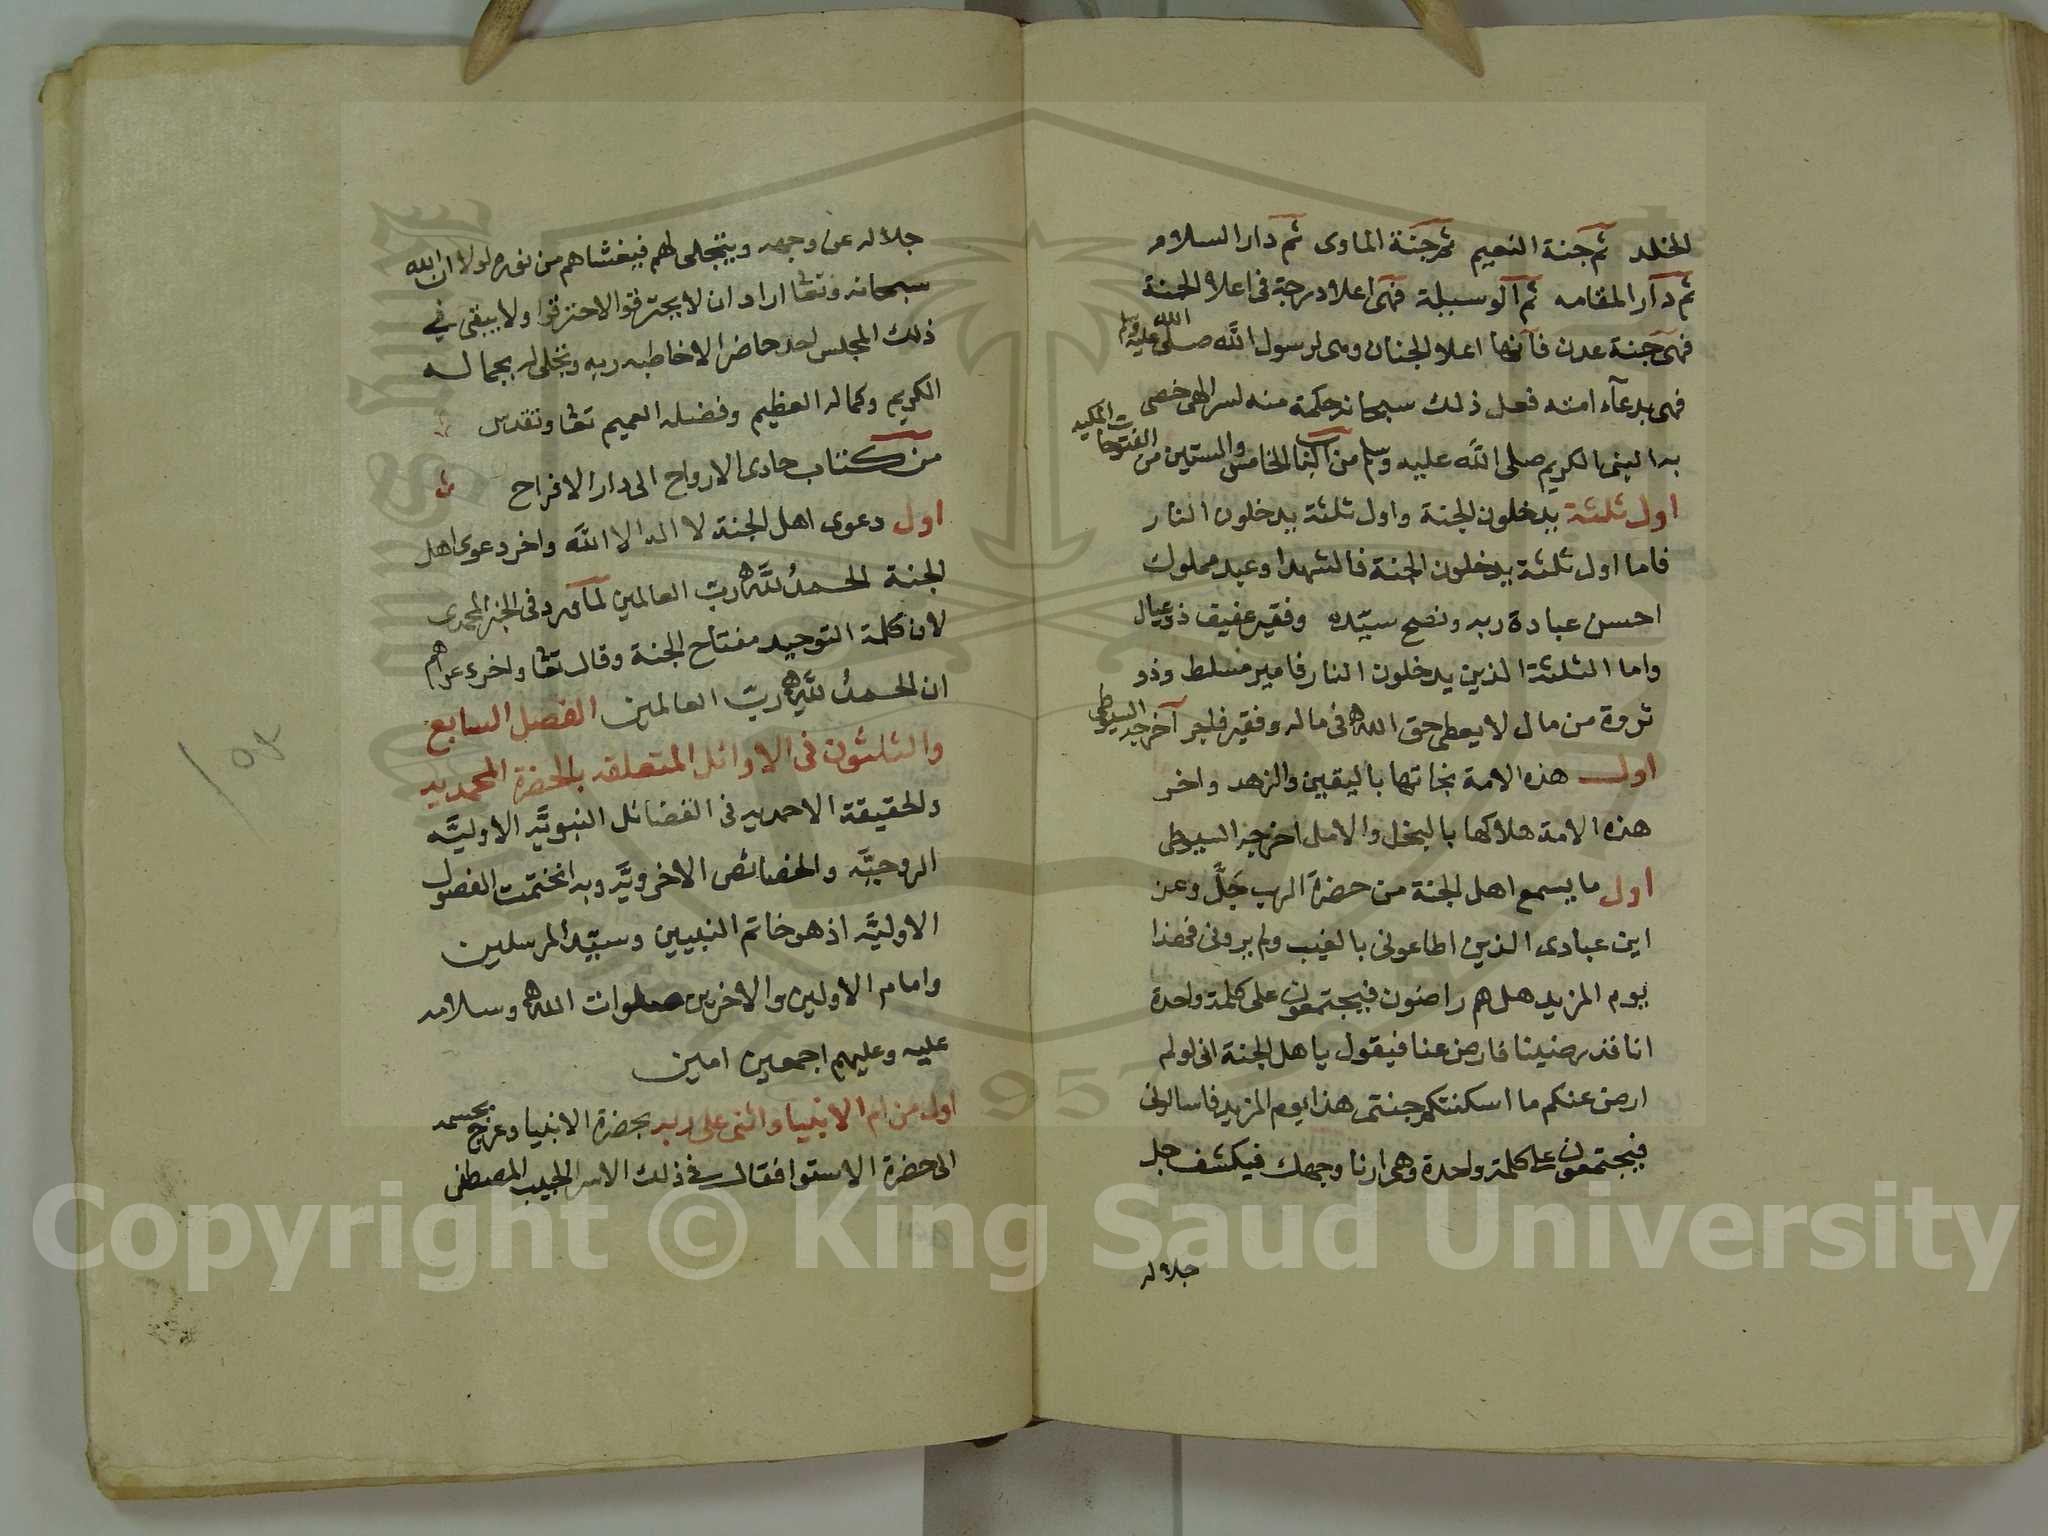 الخلد ثم جنة النعيم ثم جنة الماوى ثم دار السلام
ثم دار المقامه ثم الوسيلة فهى اعلا درجة فى اعلا الجنة
فهى جنة عدن فانها اعلا الجنان وهى لرسول الله صلى الله عليه وسلم
فهى بدعآء امته فعل ذلك سبحانه حكمة منه لسر الهى خصى
به النبى الكريم صلى الله عليه وسلم من الباب الخامس والستين من الفتوحات المكيه
اول ثلثة يدخلون الجنة واول ثلثة يدخلون النار
فاما اول ثلثة يدخلون الجنة فالشهدا وعبد مملوك
احسن عبادة ربه ونصح سيّده وفقير عفيف ذو عيال
واما الثلثة الذين يدخلون النار فامير مسلط وذو
ثروة من مال لا يعطى حق الله فى ماله وفقير فاجر آخرجه السيوطى
اول هذه الامة نجاتها باليقين والزهد واخر
هذه الامة هلاكها بالبخل والامل اخرجه السيوطى
اول ما يسمع اهل الجنة من حضرة الرب جَلَّ وعز
اين عبادى الذين اطاعونى بالغيب ولم يرونى فهذا
يوم المزيد هل هم راضون فيجتمعون على كلمة واحدة
انا قد رضينا فارض عنا فيقول يا هل الجنة انى لو لم
ارض عنكم ما اسكنتكم جنتى هذا يوم المزيد فاسالونى
فيجتمعون على كلمة واحدة وهى ارنا وجهك فيكشف جل
جلاله
جلاله عن وجهه ويتجلى لهم فيغشاهم من نوره لولا ان الله
سبحانه وتعا اراد ان لا يحترقوا لاحترقوا ولا يبقى في
ذلك المجلس احد حاضر الا خاطبه ربه وتجلى له بجماله
الكريم وكماله العظيم وفضله العميم تعا وتقدس
من كتاب حادى الارواح الى دار الافراح
اول دعوى اهل الجنة لا اله الا الله واخر دعوى اهل
الجنة الحمدُ للَّه ربّ العالمين لما ورد فى الخبر المحمدى
لان كلمة التوحيد مفتاح الجنة وقال تعا واخر دعواهم
ان الحمدُ للَّه ربّ العالمين الفصل السابع
والثلثون فى الاوائل المتعلقه بالحضرة المحمديه
والحقيقة الاحمديه فى الفضائل النبويَّه الاوليَّه
الروحيَّه والخصائص الاخرويَّه وبه اختتمت الفصول
الاوليَّه اذ هو خاتم النبيين وسيّد المرسلين
وامام الاولين والاخرين صلوات الله وسلامه
عليه وعليهم اجمعين امين
اول من ام الانبيا واثنى على ربه بحضرة الانبيا وعرج بجسمه
الى حضرة الاستوا فقال فى ذلك الاسر الحبيب المصطفى
Copyright © King Saud University
1957